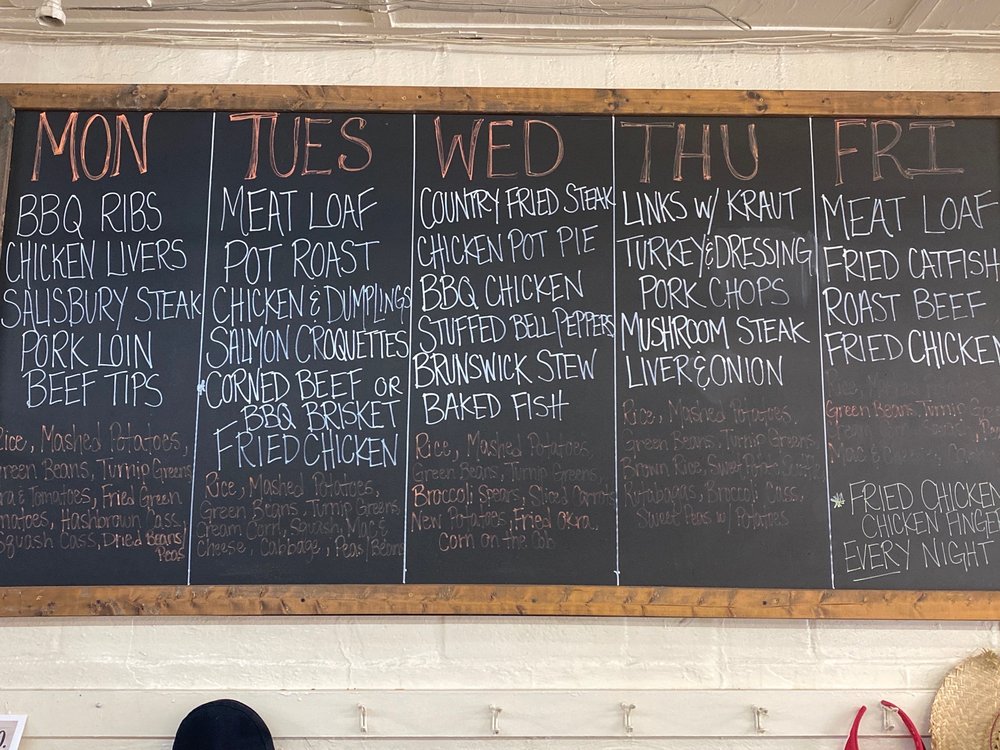 MON
BBQ RIBS
CHICKEN LIVERS
SALISBURY STEAK
PORK LOIN
BEEF TIPS
Rice, Mashed Potatoes,
Green Beans, Turnip Greens
& Tomatoes, Fried Green
Tomatoes, Hashbrown Cass.
Squash Cass., Dried Beans/
Peas
TUES
MEAT LOAF
POT ROAST
CHICKEN & DUMPLINGS
SALMON CROQUETTES
*CORNED BEEF OR
BBQ BRISKET
FRIED CHICKEN
Rice, Mashed Potatoes,
Green Beans, Turnip Greens
Cream Corn, Squash, Mac &
Cheese, Cabbage, Peas/Beans
WED
COUNTRY FRIED STEAK
CHICKEN POT PIE
BBQ CHICKEN
STUFFED BELL PEPPERS
BRUNSWICK STEW
BAKED FISH
Rice, Mashed Potatoes,
Green Beans, Turnip Greens,
Broccoli Spears, Sliced Carrots
New Potatoes, Fried Okra,
Corn on the Cob
THU
LINKS W/ KRAUT
TURKEY & DRESSING
PORK CHOPS
MUSHROOM STEAK
LIVER & ONION
Rice, Mashed Potatoes,
Green Beans, Turnip Greens
Brown Rice, Sweet Potato
Rutabagas, Broccoli Cass.,
Sweet Peas w/ Potatoes
FRI
MEAT LOAF
FRIED CATFISH
ROAST BEEF
FRIED CHICKEN
Rice,
Green Beans, Turnip
Mac &
*FRIED CHICKEN
CHICKEN FINGE
EVERY NIGHT